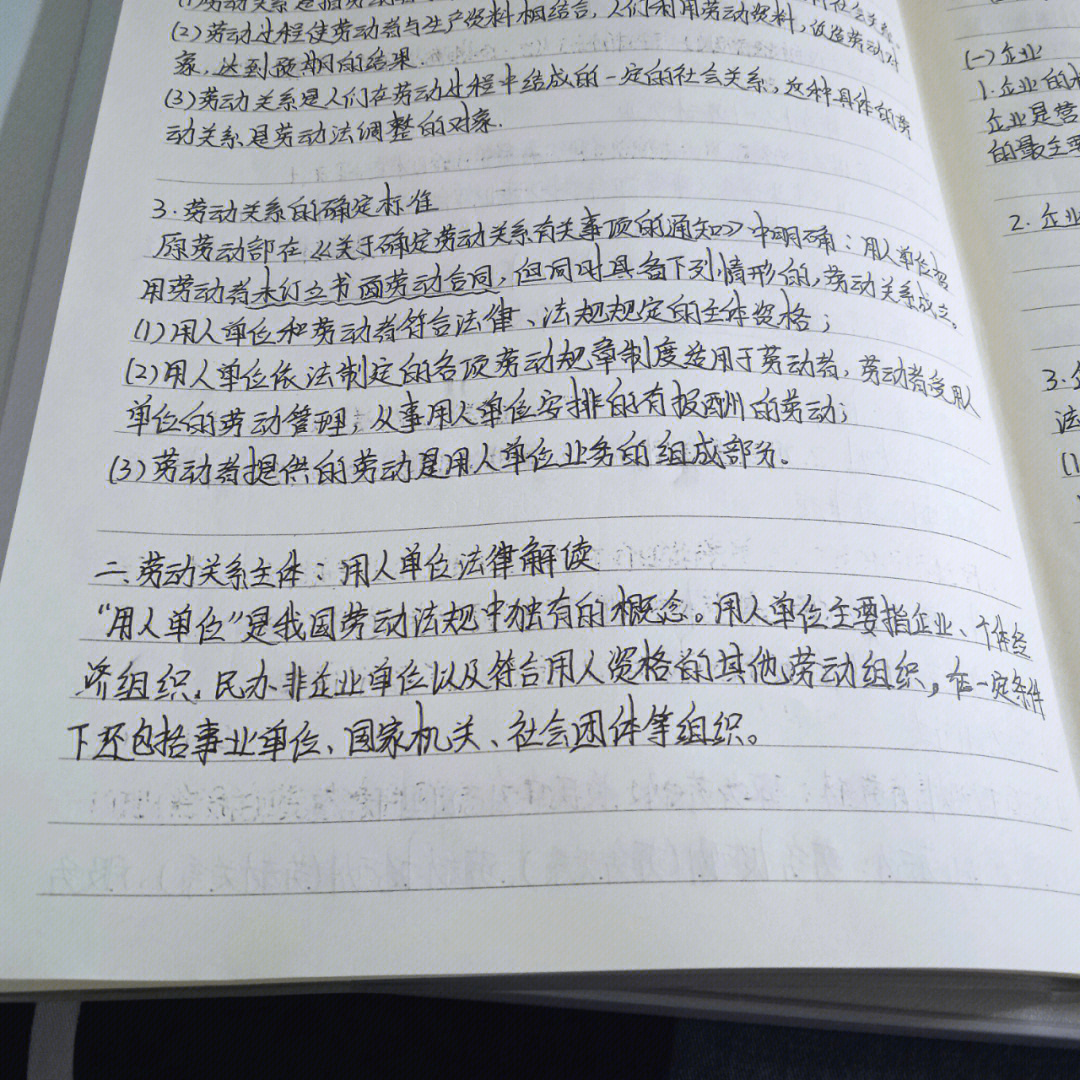 (1)劳动关系是指劳动
(2)劳动过程使劳动者与生产资料相结合,人们利用劳动资料,改造劳动对
象,达到预期的结果.
(3)劳动关系是人们在劳动过程中结成的一定的社会关系,这种具体的劳
动关系是劳动法调整的对象.
3.劳动关系的确定标准
原劳动部在《关于确定劳动关系有关事项的通知》中明确:用人单位招
用劳动者未订立书面劳动合同,但同时具备下列情形的,劳动关系成立。
(1)用人单位和劳动者符合法律、法规规定的主体资格;
(2)用人单位依法制定的各项劳动规章制度适用于劳动者,劳动者受用人
单位的劳动管理,从事用人单位安排的有报酬的劳动;
(3)劳动者提供的劳动是用人单位业务的组成部分。
二、劳动关系主体:用人单位法律解读
“用人单位”是我国劳动法规中独有的概念。用人单位主要指企业、个体经
济组织、民办非企业单位以及符合用人资格的其他劳动组织,在一定条件
下还包括事业单位、国家机关、社会团体等组织。
(一)企业
1.企业的
企业是营
的最主要
2.企业
3.
法
(1